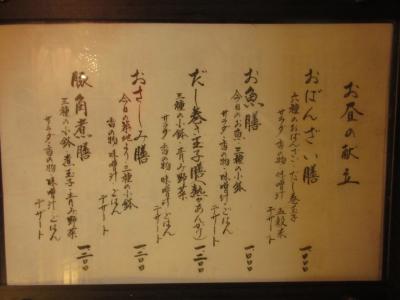 お昼の献立
おばんざい膳 一二〇〇
六種のおばんざい だし巻玉子
サラダ・香の物 味噌汁 五穀米
デザート
お魚膳 一二〇〇
今日のお魚・三種の小鉢
サラダ・香の物・味噌汁・ごはん
デザート
だし巻き玉子膳(熱々あんかけ) 一二〇〇
三種の小鉢・青み野菜
サラダ・香の物・味噌汁・ごはん
デザート
おさしみ膳 一三〇〇
今日の築地より 三種の小鉢
香の物 味噌汁 ごはん
デザート
豚角煮膳 一三〇〇
三種の小鉢 煮玉子 青み野菜
サラダ・香の物 味噌汁 ごはん
デザート